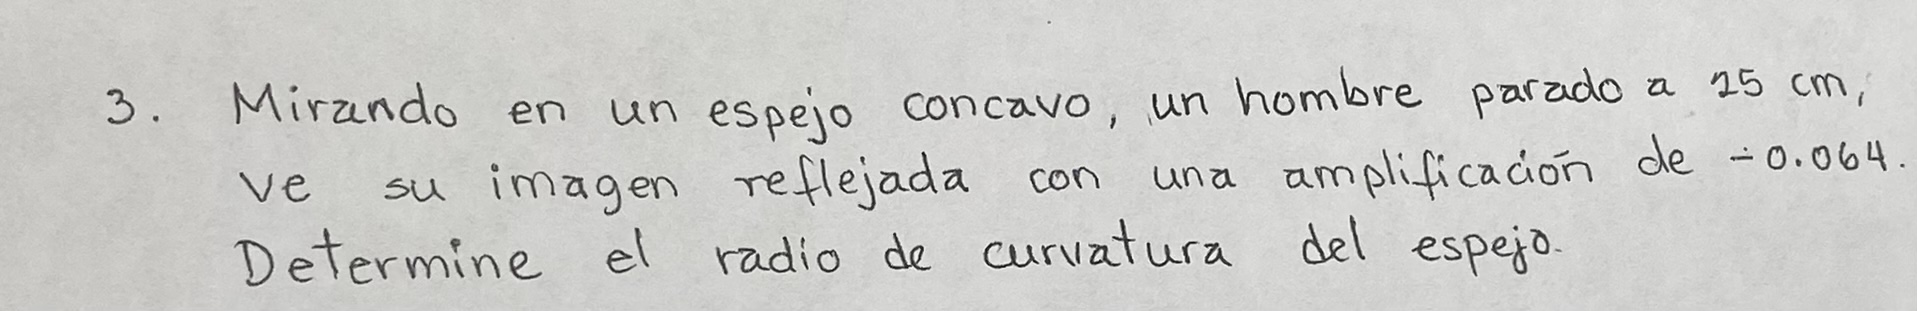 3. Mirando en un espejo concavo, un hombre parado a 25 cm,
ve su imagen reflejada con una amplificación de -0.064.
Determine el radio de curvatura del espejo.